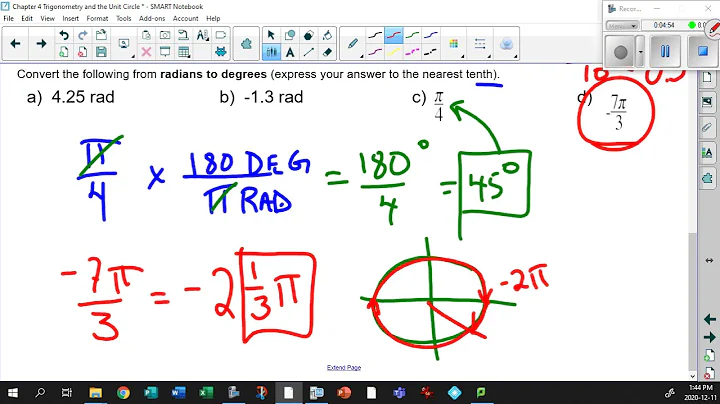 Chapter 4 Trigonometry and the Unit Circle * - SMART Notebook
File Edit View Insert Format Tools Add-ons Account Help
Recor...
0:04:54
Convert the following from radians to degrees (express your answer to the nearest tenth).
a) 4.25 rad b) -1.3 rad c) π/4 d) -7π/3
π/4 × 180 DEG/π RAD = 180°/4 = 45°
-7π/3 = -2 1/3 π
-2π
Extend Page
1:44 PM
2020-12-11